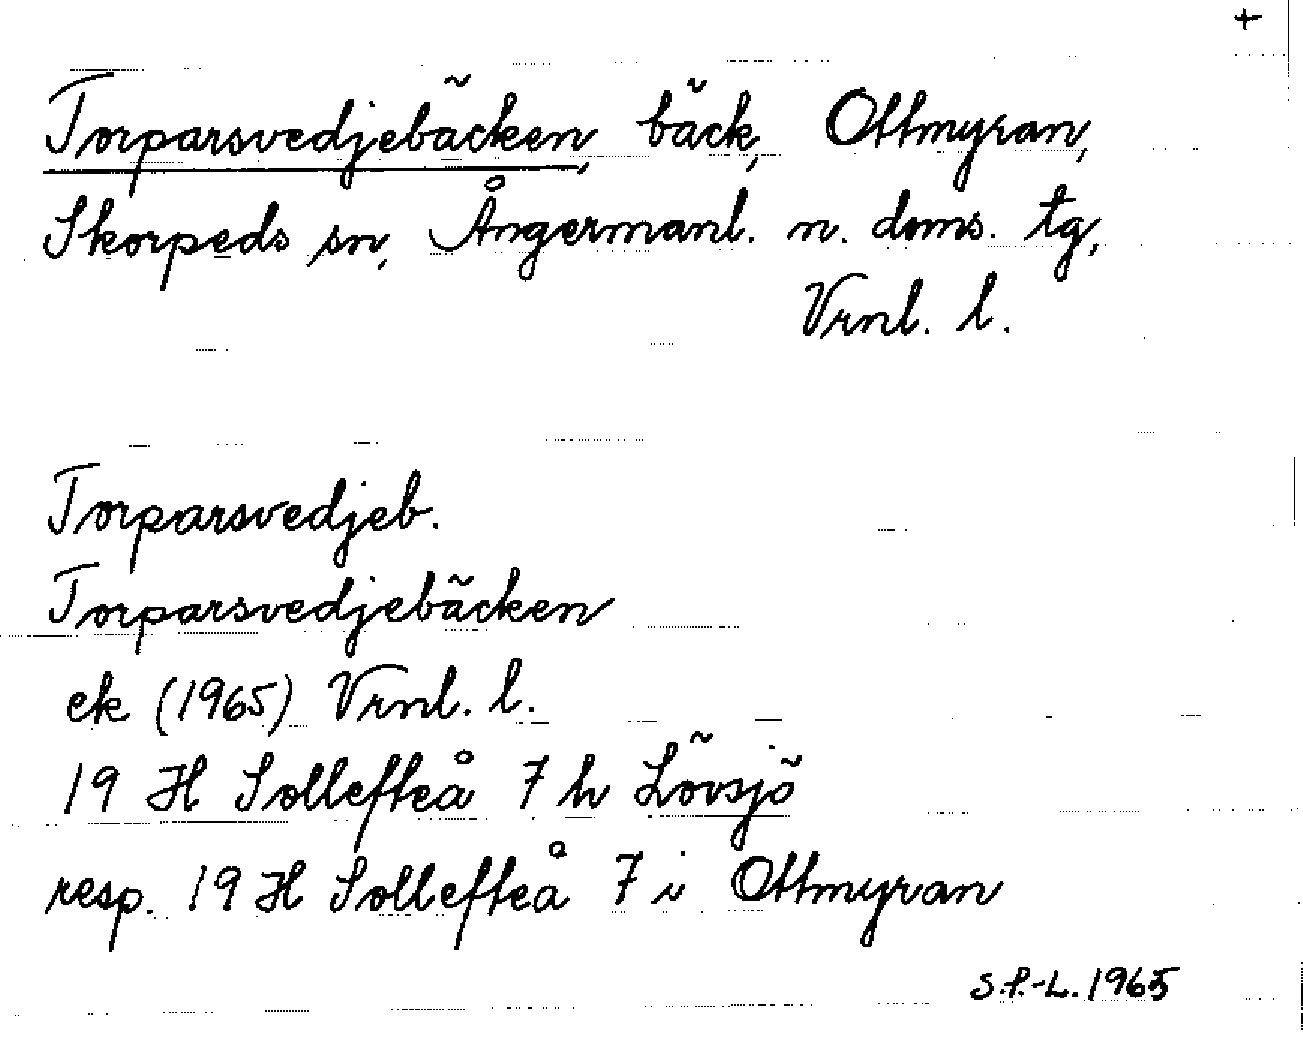 +
Torparsvedjebäcken, bäck, Ottmyran,
Skorpeds sn, Ångermanl. n. doms. tg,
Vrnl. l.
Torparsvedjeb.
Torparsvedjebäcken
ek (1965) Vrnl. l.
19 H Sollefteå 7 h Lövsjö
resp. 19 H Sollefteå 7 i Ottmyran
S.P.-L. 1965